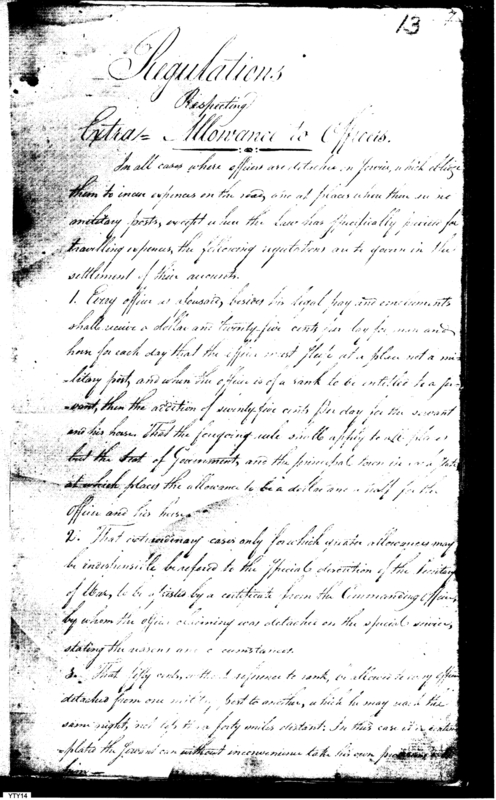 13
Regulations
Respecting
Extra= Allowance to Officers.
In all cases where officers are detached on service, which oblige
them to incur expences on the road, and at places when there are no
military posts, except when the Law has specifically provided for
travelling expences, the following regulations are to govern in the
settlement of their accounts.
1. Every officer besides his legal pay and emoluments
shall receive a dollar and twenty five cents per day for man and
horse for each day that the officer must sleep at a place not a mi
-litary post, and when the officer is of a rank to be entitled to a ser
-vant, then the addition of seventy five cents per day for the servant
and his horse. That the foregoing rule shall apply to all places
but the Seat of Government, and the principal town in each State
at which places the allowance to be a dollar and a half for the
officer and his horse.
2. That extraordinary cases only for which greater allowances may
be indispensible be refered to the special direction of the Secretary
of War, to be attested by a certificate from the Commanding Officer,
by whom the officer was detached on the special service,
stating the reasons and circumstances.
3. That fifty cents without reference to rank, be allowed to every officer
detached from one military post to another, which he may reach the
same night, not less than forty miles distant. In this case it is contem
-plated the person can without inconvenience take his own provisions with
him
YTY14